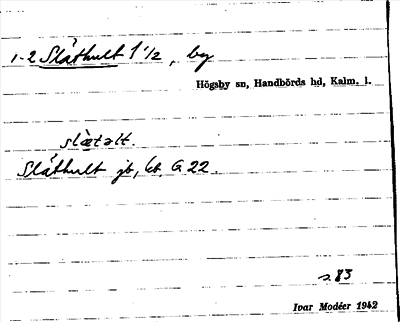 1-2 Slåthult 1 1/2, by
Högsby sn, Handbörds hd, Kalm. l.
slætəlt.
Slåthult jb, kb, G 22.
s. 83
Ivar Modéer 1942